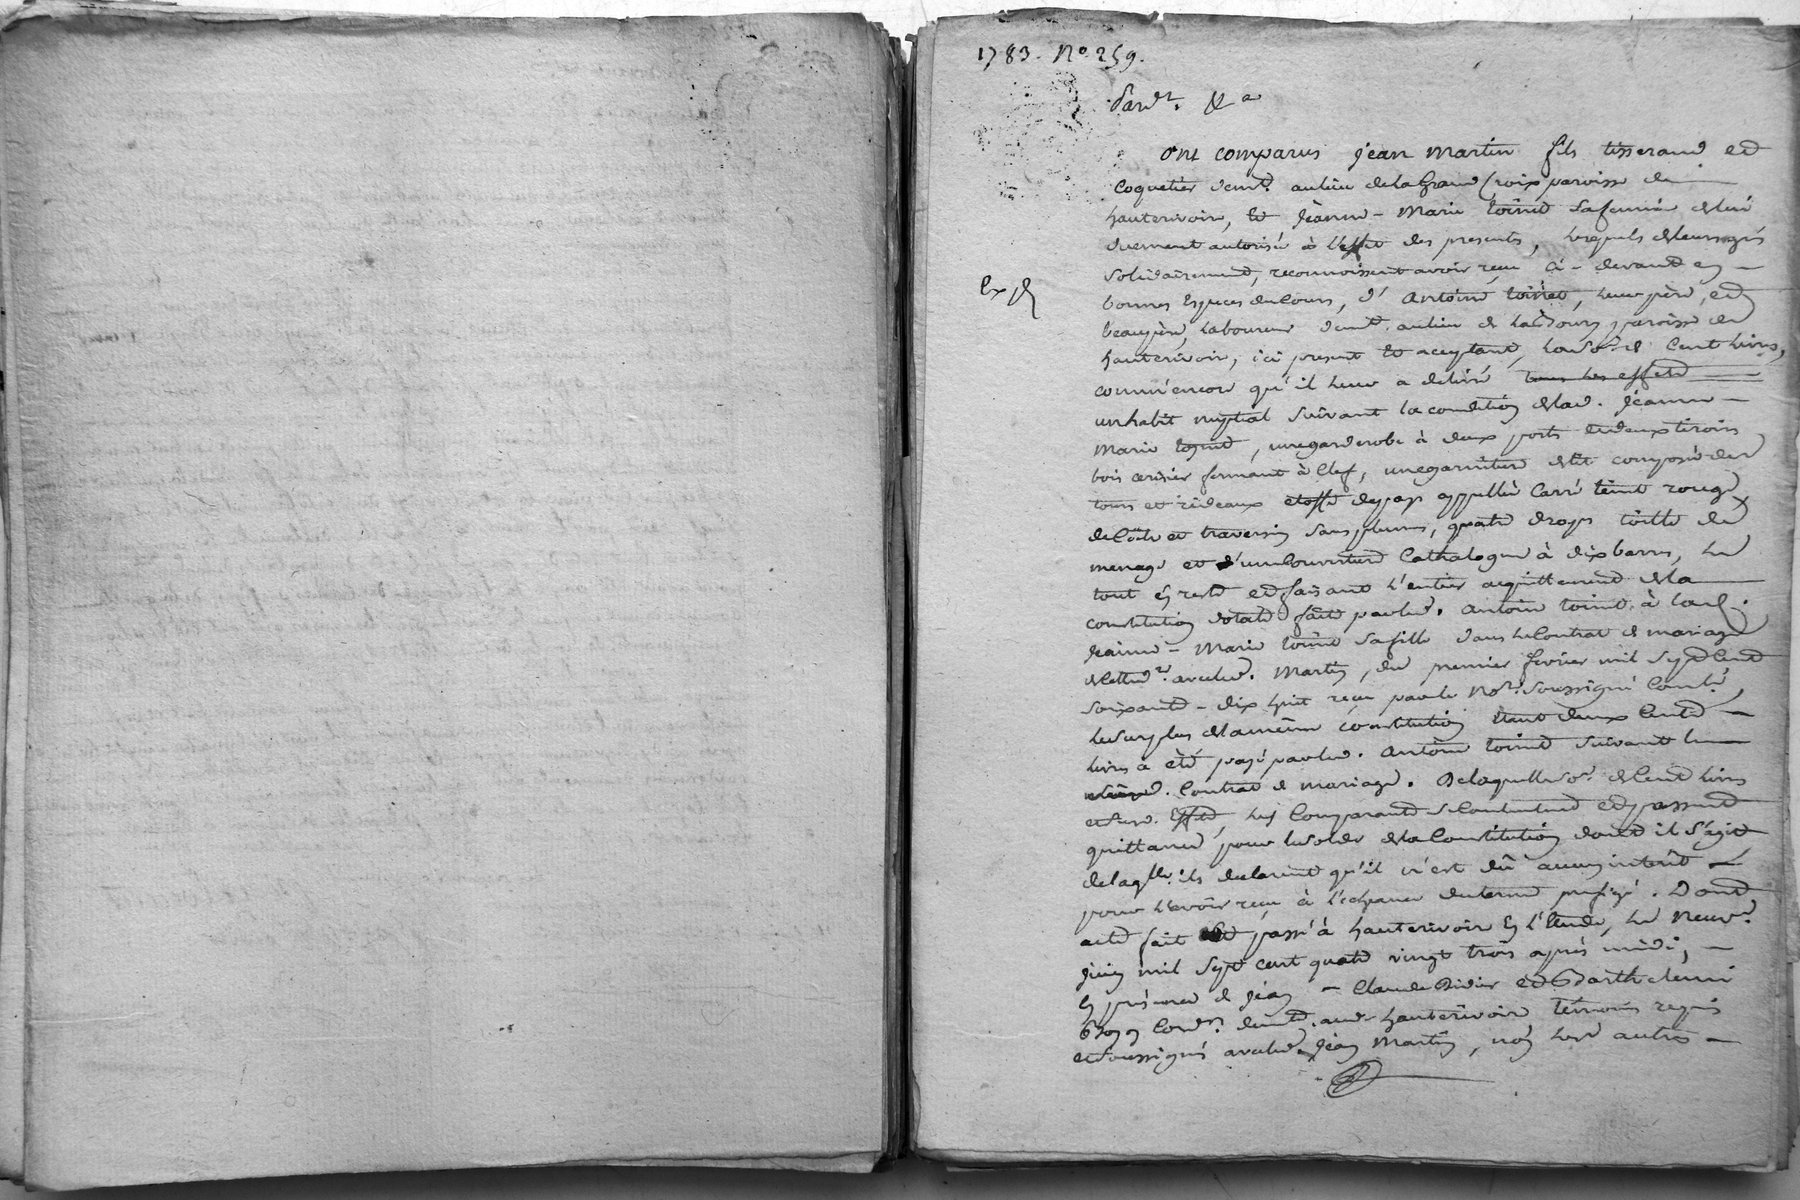 1783. No. 259.
Pardt. &a
Ont comparus jean Martin fils tisserand et
Coquetier demt. aulieu delaGrand Croix paroisse de
hauterivoir, et jeanne - Marie toinet safemme delui
duement autorisée à l'effet des presents, lesquels deleurs grés
solidairement, reconnoissent avoir reçu ci - devant en
Exp.
bonnes Espèces ducours, d'antoine toinet, leur père, et
beaupère, laboureur demt. aulieu de paroisse de
hauterivoir, ici present et aceptant, laso.e de Cent livres,
comm'encore qu'il leur a delivré tous les effets
unhabit nuptial suivant lacondition delad. jeanne -
Marie toinet, unegarderobe à deux ports etdeux tiroirs
bois cerisier fermant à clef, unegarniture delit composée de
tours et rideaux etoffe depays appellée Carré teint rouge
de et traversin sans plumes, quatre draps toille de
menage et d'uneCouverture Cathalogne à dix barres, le
tout en reste etfaisant l'entier acquittement dela
constitution dotale faite parled. antoine toinet à lad.
jeanne - Marie toinet safille dans leContrat de mariage
avecled. Martin, du premier fevrier mil septCent
soixante - dix huit reçu parle Nore. soussigné
lesurplus delamême constitution etant deux Cents
livres a été payé parled. Antoine toinet suivant le
Contrat de mariage. Delaquelleso.e deCent livres
etsusd. Effets, les Comparants seContentent etpassent
quittance pour lesolde delaConstitution dont il s'agit
delaqlle. ils declarent qu'il n'est dû aucun interêt
pour l'avoir reçu à l'echeance duterme prefigé. Dont
acte fait et passé à hauterivoir en l'Etude, le Neuf
juin mil sept cent quatre vingt trois après midi,
En présence de jean - Claude et Barthelemi
demt. aud. hauterivoir temoins requis
etsoussignés avecled. jean Martin, non les autres